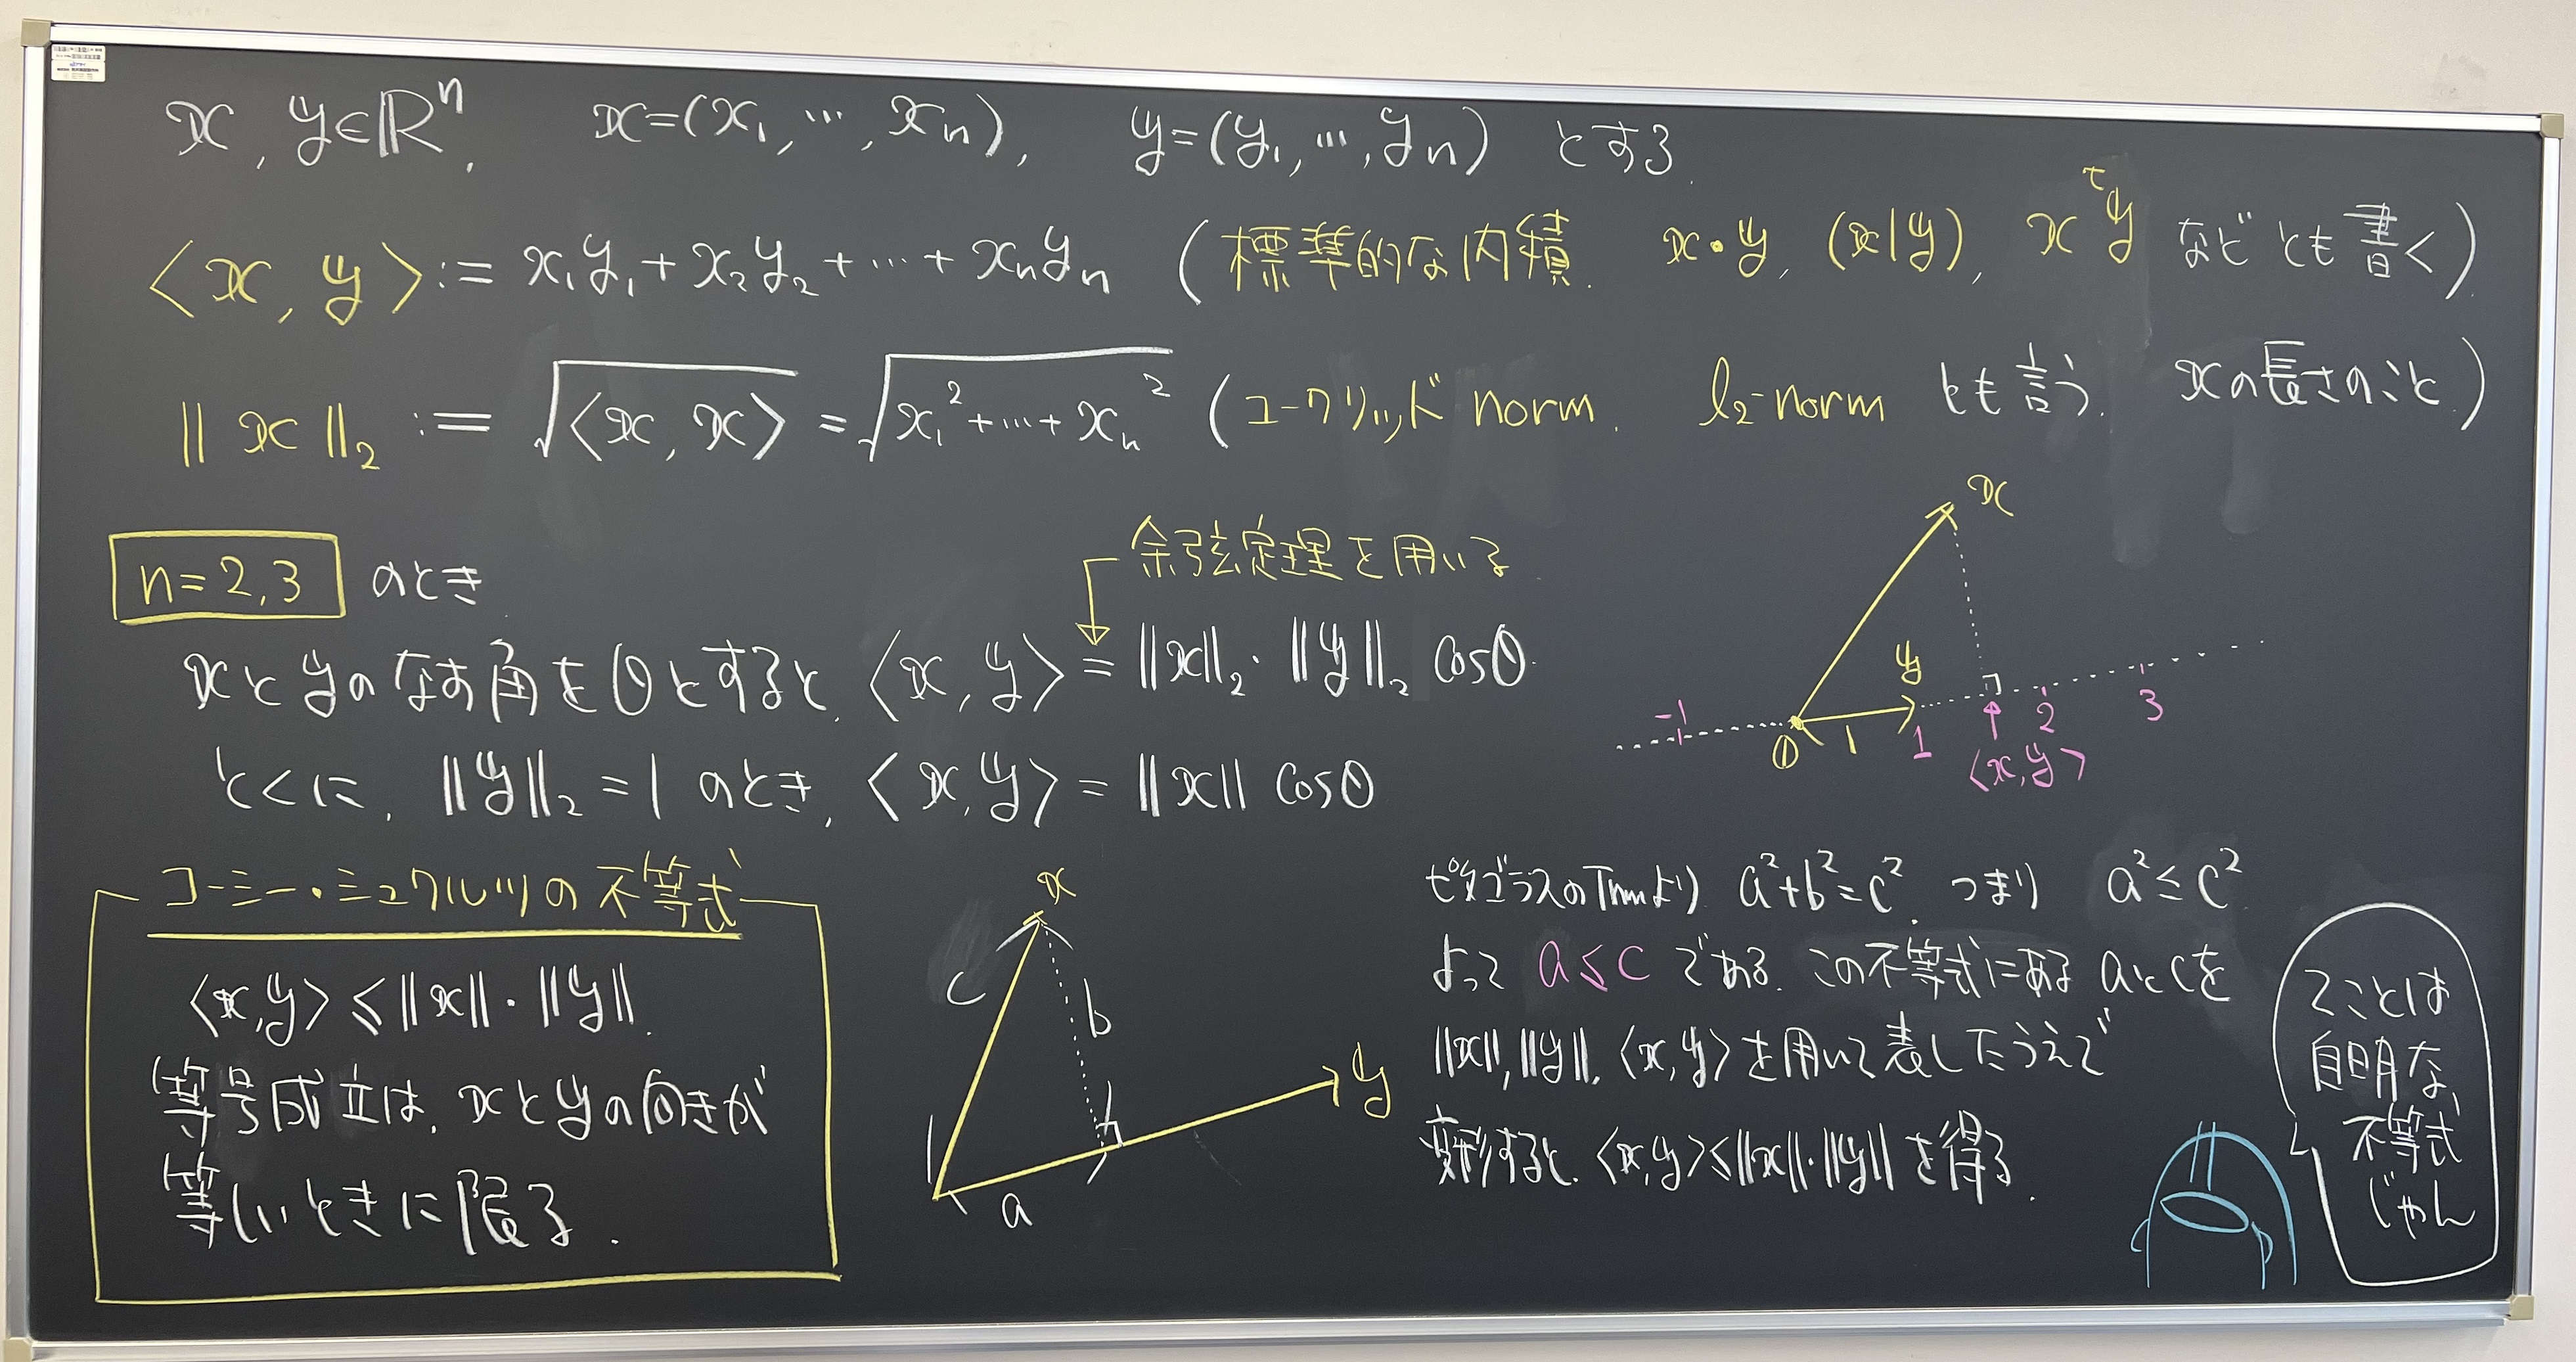 x, y∈ℝⁿ, x=(x₁, …, xₙ), y=(y₁, …, yₙ) とする.
⟨x, y⟩ := x₁y₁ + x₂y₂ + … + xₙyₙ (標準的な内積. x・y, (x|y), xᵗy などとも書く)
‖x‖₂ := √⟨x, x⟩ = √(x₁² + … + xₙ²) (ユークリッド norm. l₂-norm とも言う. xの長さのこと.)
n=2,3 のとき
余弦定理を用いる
xとyのなす角をθとすると, ⟨x, y⟩ = ‖x‖₂・‖y‖₂ cosθ.
とくに, ‖y‖₂ = 1 のとき, ⟨x, y⟩ = ‖x‖ cosθ
x
y
-1
0
1
1
2
3
⟨x, y⟩
コーシー・シュワルツの不等式
⟨x, y⟩ ≤ ‖x‖・‖y‖.
等号成立は, xとyの向きが
等しいときに限る.
x
c
b
y
a
ピタゴラスのThmより a²+b²=c². つまり a²≤c².
よって a≤c である. この不等式にある aとcを
‖x‖, ‖y‖, ⟨x, y⟩ を用いて表したうえで
変形すると, ⟨x, y⟩≤‖x‖・‖y‖ を得る.
てことは
自明な
不等式
じゃん